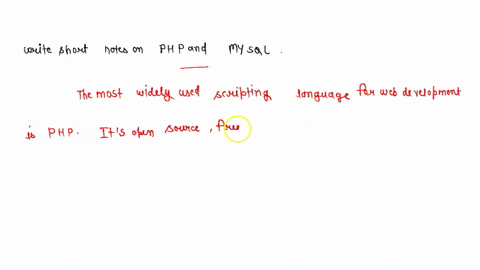 write short notes on PHP and MYSQL.
The most widely used scripting language for web development
is PHP. It's open source, free